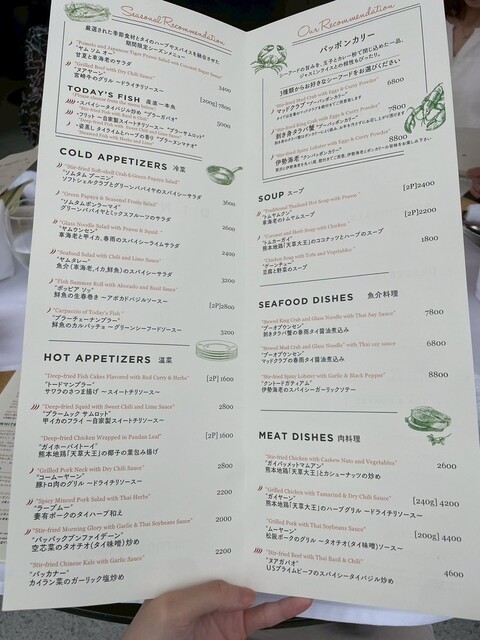 Seasonal Recommendation
厳選された季節食材とタイのハーブやスパイスを融合させた
期間限定シーズンメニュー
"Pomelo and Japanese Tiger Prawn Salad with Coconut Sugar Sauce"
"ヤム ソム オー"
甘夏と車海老のサラダ
3400
"Grilled Beef with Dry Chili Sauce"
"ヌアヤーン"
宮崎牛のグリル 〜ドライチリソース〜
[200g] 7800
TODAY'S FISH 産直一本魚
"Please choose from the menu below"
・スパイシータイバジル炒め "プラーガパオ"
5000
"Stir-fried Fish with Basil & Chili"
・フリット 〜自家製スイートチリソース〜 "プラーサムロット"
"Deep-fried Fish with Sweet Chili and Lime Sauce"
・姿蒸し タイライムとハーブの香り "プラーヌンマナオ"
"Steamed Fish with Herbs and Lime"
COLD APPETIZERS 冷菜
"Stir-fried Soft-shell Crab & Green Papaya Salad"
"ソムタム プーニン"
ソフトシェルクラブとグリーンパパイヤのスパイシーサラダ
3600
"Green Papaya & Seasonal Fruits Salad"
"ソムタムポンラーマイ"
グリーンパパイヤとミックスフルーツのサラダ
2600
"Glass Noodle Salad with Prawn & Squid"
"ヤムウンセン"
車海老と甲イカ、春雨のスパイシーライムサラダ
2400
"Seafood Salad with Chili and Lime Sauce"
"ヤムタレー"
魚介（車海老、イカ、鮮魚）のスパイシーサラダ
3200
"Fish Summer Roll with Abocado and Basil Sauce"
"ポッピア ソッ"
鮮魚の生春巻き 〜アボカドバジルソース〜
[2P] 2800
"Carpaccio of Today's Fish"
"プラーチューナンプラー"
鮮魚のカルパッチョ 〜グリーンシーフードソース〜
3200
HOT APPETIZERS 温菜
"Deep-fried Fish Cakes Flavored with Red Curry & Herbs"
"トードマンプラー"
サワラのさつま揚げ 〜スイートチリソース〜
[2P] 1600
"Deep-fried Squid with Sweet Chili and Lime Sauce"
"プラームック サムロット"
甲イカのフライ 〜自家製スイートチリソース〜
2800
"Deep-fried Chicken Wrapped in Pandan Leaf"
"ガイホーバイトーイ"
熊本地鶏「天草大王」の椰子の葉包み揚げ
[2P] 1600
"Grilled Pork Neck with Dry Chili Sauce"
"コームーヤーン"
豚トロ肉のグリル 〜ドライチリソース〜
2800
"Spicy Minced Pork Salad with Thai Herbs"
"ラープムー"
妻有ポークのタイハーブ和え
2200
"Stir-fried Morning Glory with Garlic & Thai Soybeans Sauce"
"パッパックブンファイデーン"
空芯菜のタオチオ（タイ味噌）炒め
2000
"Stir-fried Chinese Kale with Garlic Sauce"
"パッカナー"
カイラン菜のガーリック塩炒め
2200
Our Recommendation
パッポンカリー
シーフードの旨みを、玉子とカレー粉で閉じ込めた一品。
ジャスミンライスとの相性もぴったり。
3種類からお好きなシーフードをお選びください
"Stir-fried Mud Crab with Eggs & Curry Powder"
マッドクラブ "プーパッポンカリー"
6800
"Stir-fried King Crab with Eggs & Curry Powder"
剥き身タラバ蟹 "プーパッポンカリー"
7800
"Stir-fried Spiny Lobster with Eggs & Curry Powder"
伊勢海老 "クンパッポンカリー"
8800
SOUP スープ
"Traditional Thailand Hot Soup with Prawn"
"トムヤムクン"
車海老のトムヤムスープ
[2P] 2400
"Coconut and Herb Soup with Chicken"
"トムカーガイ"
熊本地鶏「天草大王」のココナッツとハーブのスープ
[2P] 2200
"Chicken Soup with Tofu and Vegetables"
"ゲーンチュー"
豆腐と野菜のスープ
1800
SEAFOOD DISHES 魚介料理
"Stewed King Crab and Glass Noodle with Thai Soy Sauce"
"プーオプウンセン"
剥きタラバ蟹の春雨タイ醤油煮込み
7800
"Stewed Mud Crab and Glass Noodle with Thai soy sauce"
"プーオプウンセン"
マッドクラブの春雨タイ醤油煮込み
6800
"Stir-fried Spiny Lobster with Garlic & Black Pepper"
"クントードガティアム"
伊勢海老のスパイシーガーリックソテー
8800
MEAT DISHES 肉料理
"Stir-fried Chicken with Cashew Nuts and Vegetables"
"ガイパッメットマムアン"
熊本地鶏「天草大王」とカシューナッツの炒め
2600
"Grilled Chicken with Tamarind & Dry Chili Sauce"
"ガイヤーン"
熊本地鶏「天草大王」のハーブグリル 〜ドライチリソース〜
[240g] 4200
"Grilled Pork with Thai Soybeans Sauce"
"ムーヤーン"
松阪ポークのグリル 〜タオチオ（タイ味噌）ソース〜
[200g] 4400
"Stir-fried Beef with Thai Basil & Chili"
"ヌアガパオ"
USプライムビーフのスパイシータイバジル炒め
4600